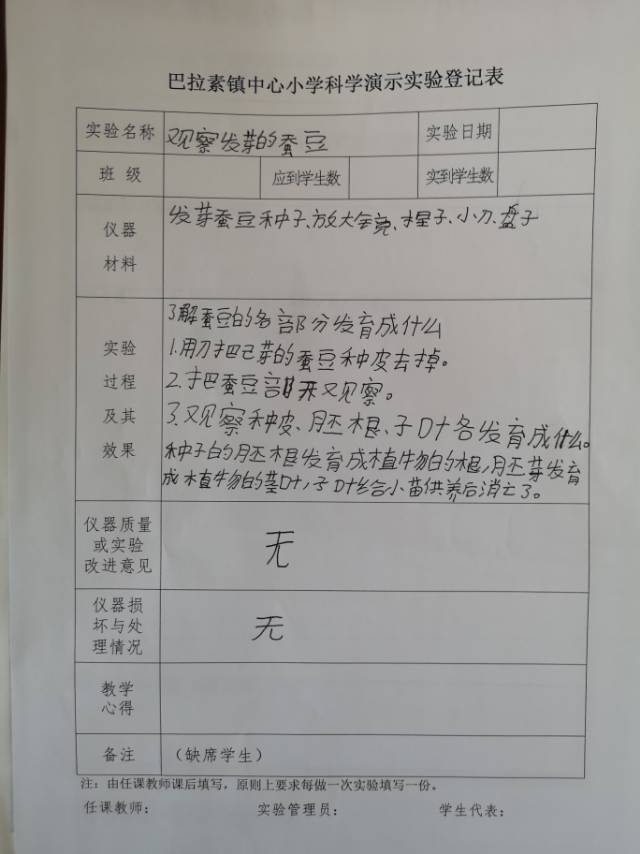 巴拉素镇中心小学科学演示实验登记表
实验名称 观察发芽的蚕豆 实验日期
班 级 应到学生数 实到学生数
仪器
材料
发芽蚕豆种子、放大镜、捏子、小刀、盘子
实验
过程
及其
效果
了解蚕豆的各部分发育成什么
1.用刀把己芽的蚕豆种皮去掉。
2.把蚕豆部开观察。
3.观察种皮、胚根、子叶各发育成什么。
种子的胚根发育成植物的根,胚芽发育
成植物的茎叶,子叶给小苗供养后消亡了。
仪器质量
或实验
改进意见
无
仪器损
坏与处
理情况
无
教学
心得
备注 (缺席学生)
注:由任课教师课后填写,原则上要求每做一次实验填写一份。
任课教师: 实验管理员: 学生代表: